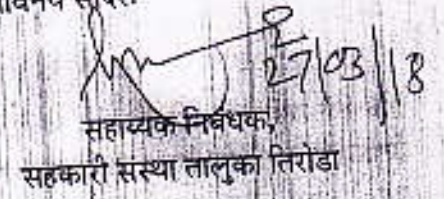 सविनय सादर.
27/03/18
सहाय्यक निबंधक,
सहकारी संस्था तालुका तिरोडा